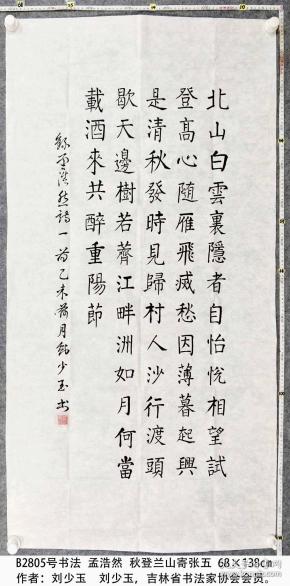 北山白雲裏隱者自怡悅相望試
登高心隨雁飛滅愁因薄暮起興
是清秋發時見歸村人沙行渡頭
歇天邊樹若薺江畔洲如月何當
載酒來共醉重陽節
詩一首乙未
少玉书
B2805号书法 孟浩然 秋登兰山寄张五 68×138cm
作者：刘少玉 刘少玉，吉林省书法家协会会员。